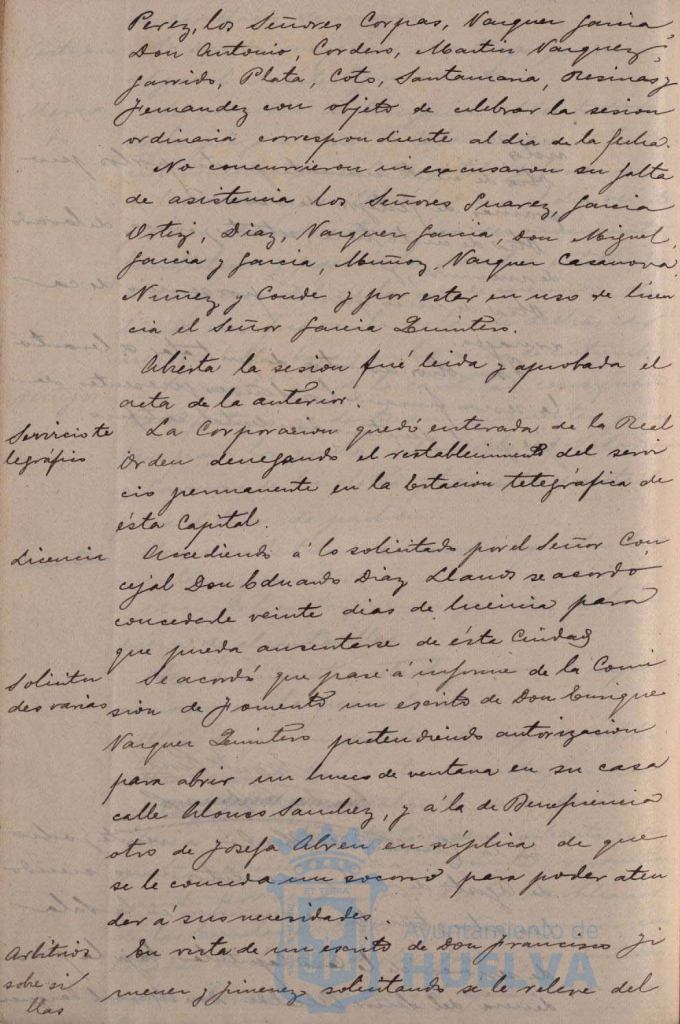 Perez, los Señores Corpas, Vazquez Garcia,
Don Antonio, Cordero, Martin Vazquez,
Garrido, Plata, Coto, Santamaria, Resinas y
Fernandez con objeto de celebrar la sesion
ordinaria correspondiente al dia de la fecha.
No concurrieron ni excusaron su falta
de asistencia los Señores Suarez, Garcia
Ortiz, Diaz, Vazquez Garcia, Don Miguel,
Garcia y Garcia, Muñoz, Vazquez Casanova,
Nuñez y Conde y por estar en uso de licen
cia el Señor Garcia Quintero.
Abierta la sesion fué leida y aprobada el
acta de la anterior.
Servicio te
legráfico
La Corporacion quedó enterada de la Real
Orden denegando el restablecimiento del servi
cio permanente en la Estacion telegráfica de
ésta Capital.
Licencia
Accediendo á lo solicitado por el Señor Con
cejal Don Eduardo Diaz Llanos se acordó
concederle veinte dias de licencia para
que pueda ausentarse de ésta Ciudad
Solicitu
des varias
Se acordó que pase á informe de la Comi
sion de Fomento un escrito de Don Enrique
Vazquez Quintero pretendiendo autorizacion
para abrir un hueco de ventana en su casa
calle Alonso Sanchez, y á la de Beneficencia
otro de Josefa Abreu en súplica de que
se le conceda un socorro para poder aten
der á sus necesidades.
Arbitrios
sobre si
llas
En vista de un escrito de Don Francisco Ji
menez y Jimenez solicitando se le releve del
Ayuntamiento de
HUELVA